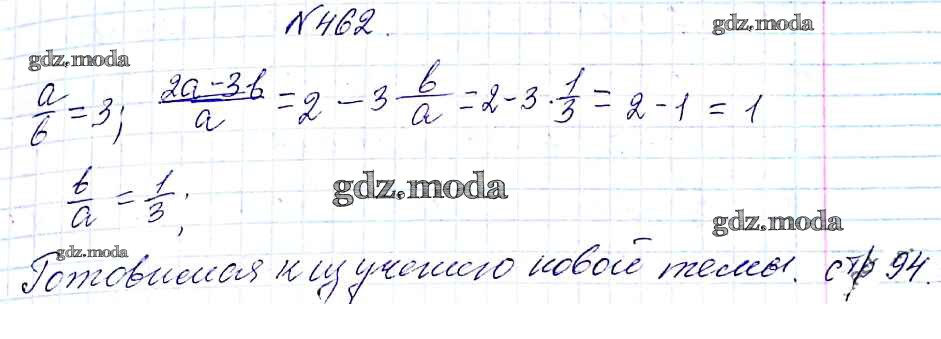 №462.
gdz.moda
gdz.moda
a/b = 3; (2a-3b)/a = 2 - 3 b/a = 2 - 3 · 1/3 = 2 - 1 = 1
b/a = 1/3;
gdz.moda
gdz.moda
gdz.moda
Готовимся к изучению новой темы. стр 94.